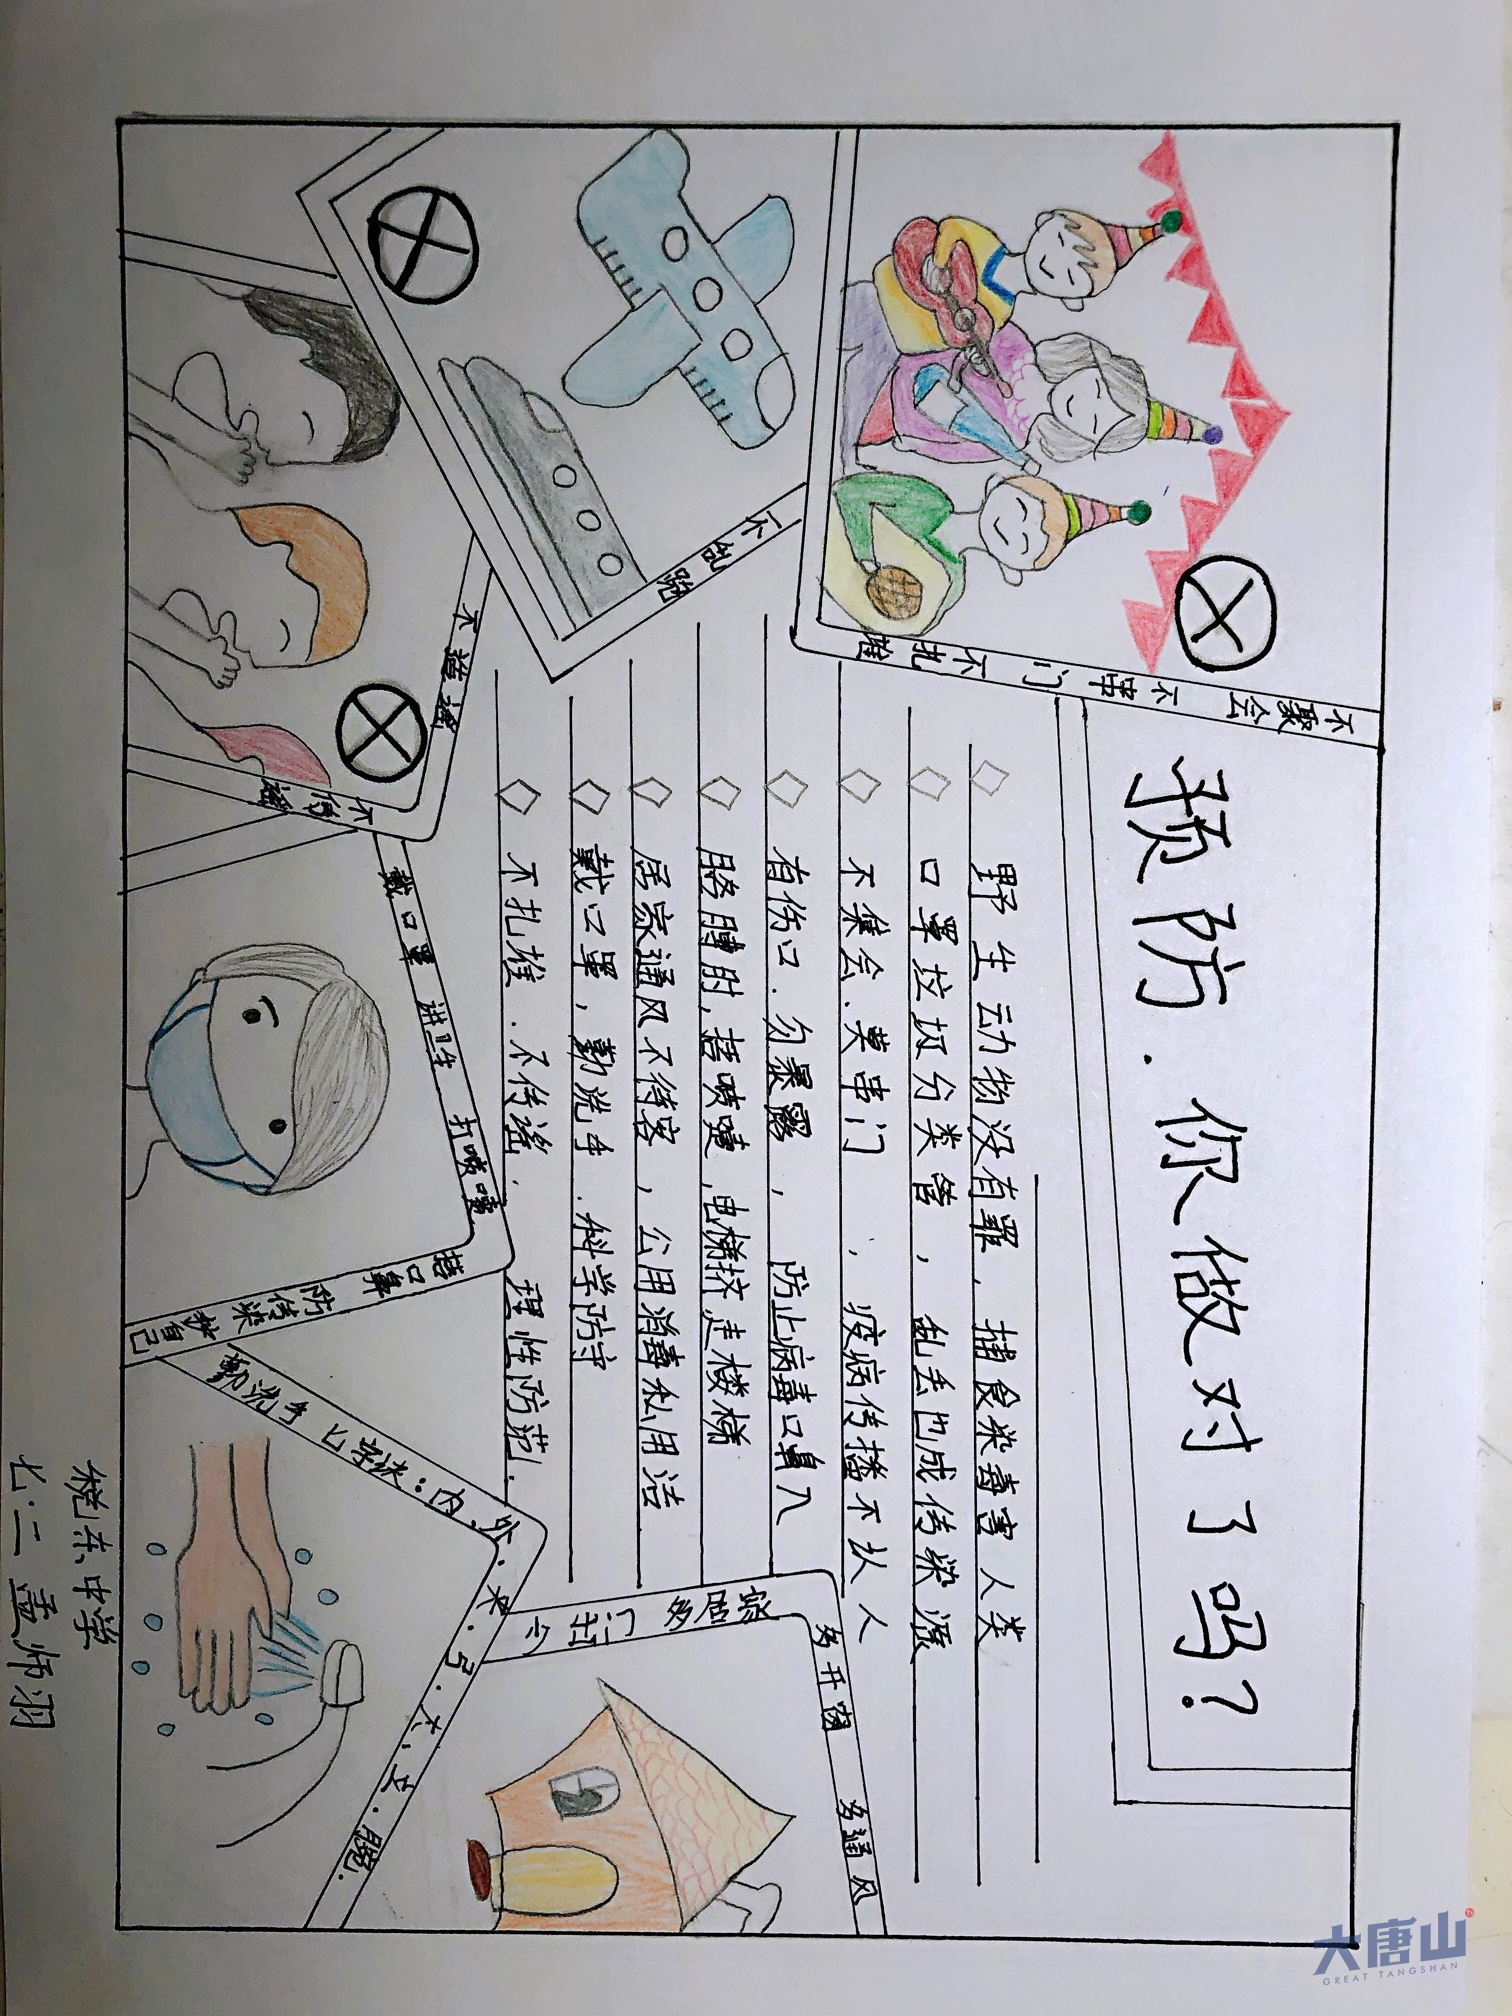 预防.你做对了吗?
不聚会 不串门 不扎堆
不乱跑
不造谣
不传谣
戴口罩 讲卫生 打喷嚏
捂口鼻 防传染 护自己
勤洗手 7字诀:内.外.夹.弓.大.立.腕.
少出门 多居家
多开窗 多通风
◇ 野生动物没有罪.捕食染毒害人类
◇ 口罩垃圾分类管,乱丢也成传染源
◇ 不集会.莫串门,疫病传播不认人
◇ 有伤口.勿暴露,防止病毒口鼻入
◇ 胳膊肘,捂喷嚏,电梯挤走楼梯
◇ 居家通风不待客,公用消毒私用洁
◇ 戴口罩,勤洗手.科学防守
◇ 不扎堆.不传谣.理性防范.
东中学
七.二 孟师羽
大唐山
GREAT TANGSHAN